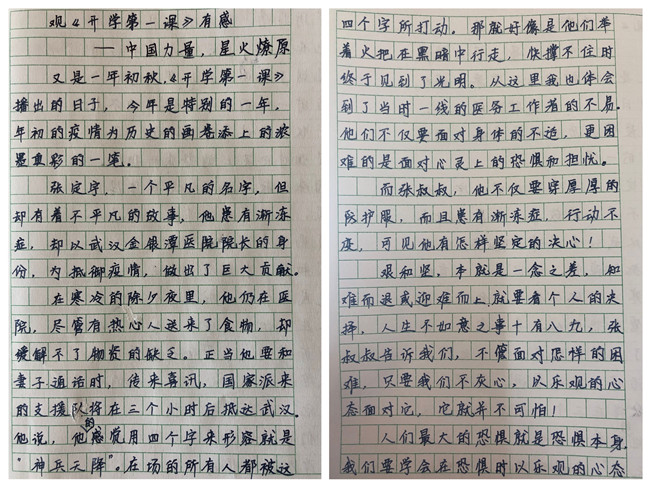 观《开学第一课》有感
——中国力量，星火燎原
又是一年初秋，《开学第一课》
播出的日子，今年是特别的一年，
年初的疫情为历史的画卷添上的浓
墨重彩的一笔。
张定宇，一个平凡的名字，但
却有着不平凡的故事，他患有渐冻
症，却以武汉金银潭医院院长的身
份，为抵御疫情，做出了巨大贡献。
在寒冷的除夕夜里，他仍在医
院，尽管有热心人送来了食物，却
缓解不了物资的缺乏。正当他要和
妻子通话时，传来喜讯，国家派来
的支援队将在三个小时后抵达武汉。
他说，他的感觉用四个字来形容就是
“神兵天降”。在场的所有人都被这
四个字所打动。那就好像是他们举
着火把在黑暗中行走，快撑不住时
终于见到了光明。从这里我也体会
到了当时一线的医务工作者的不易。
他们不仅要面对身体的不适，更困
难的是面对心灵上的恐惧和担忧。
而张叔叔，他不仅要穿厚厚的
防护服，而且患有渐冻症，行动不
便，可见他有怎样坚定的决心！
艰和坚，本就是一念之差，知
难而退或迎难而上就要看个人的抉
择，人生不如意之事十有八九，张
叔叔告诉我们，不管面对怎样的困
难，只要我们不灰心，以乐观的心
态面对它，它就并不可怕！
人们最大的恐惧就是恐惧本身，
我们要学会在恐惧时以乐观的心态